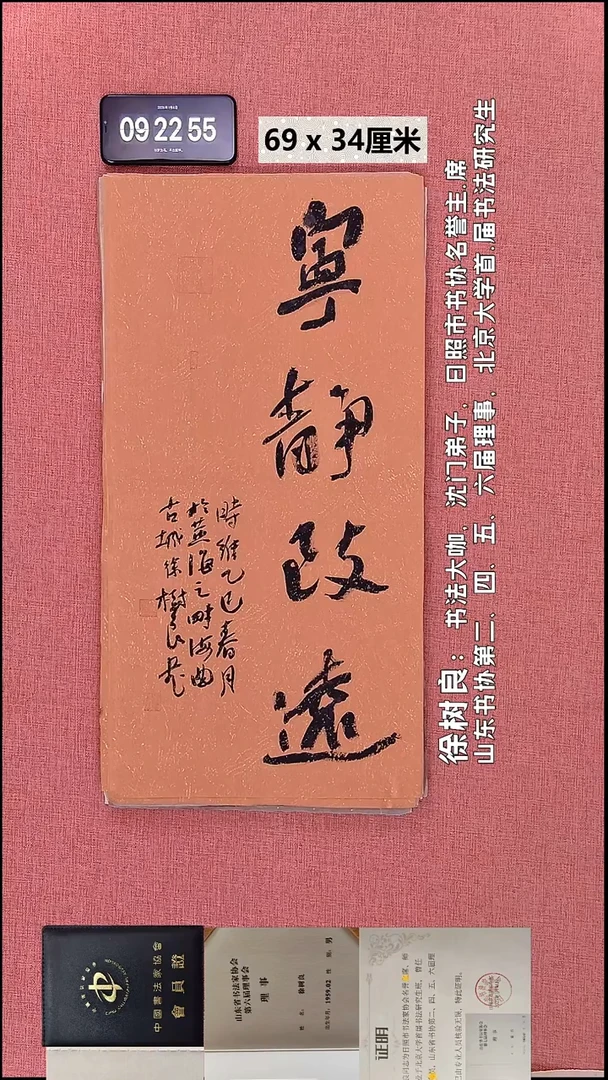 09 22 55
69 x 34厘米
寧
靜
致
遠
時維乙巳春月
於黃海之畔海曲
古城徐樹良書
徐树良：书法大咖，沈门弟子，日照市书协名誉主.席
山东书协第二、四、五、六届理事，北京大学首.届书法研究生
中國書法家協會
會員證
山东省书法家协会
第六届理事会
理 事
姓 名： 徐树良
性 别： 男
出生年月： 1959.02
证明